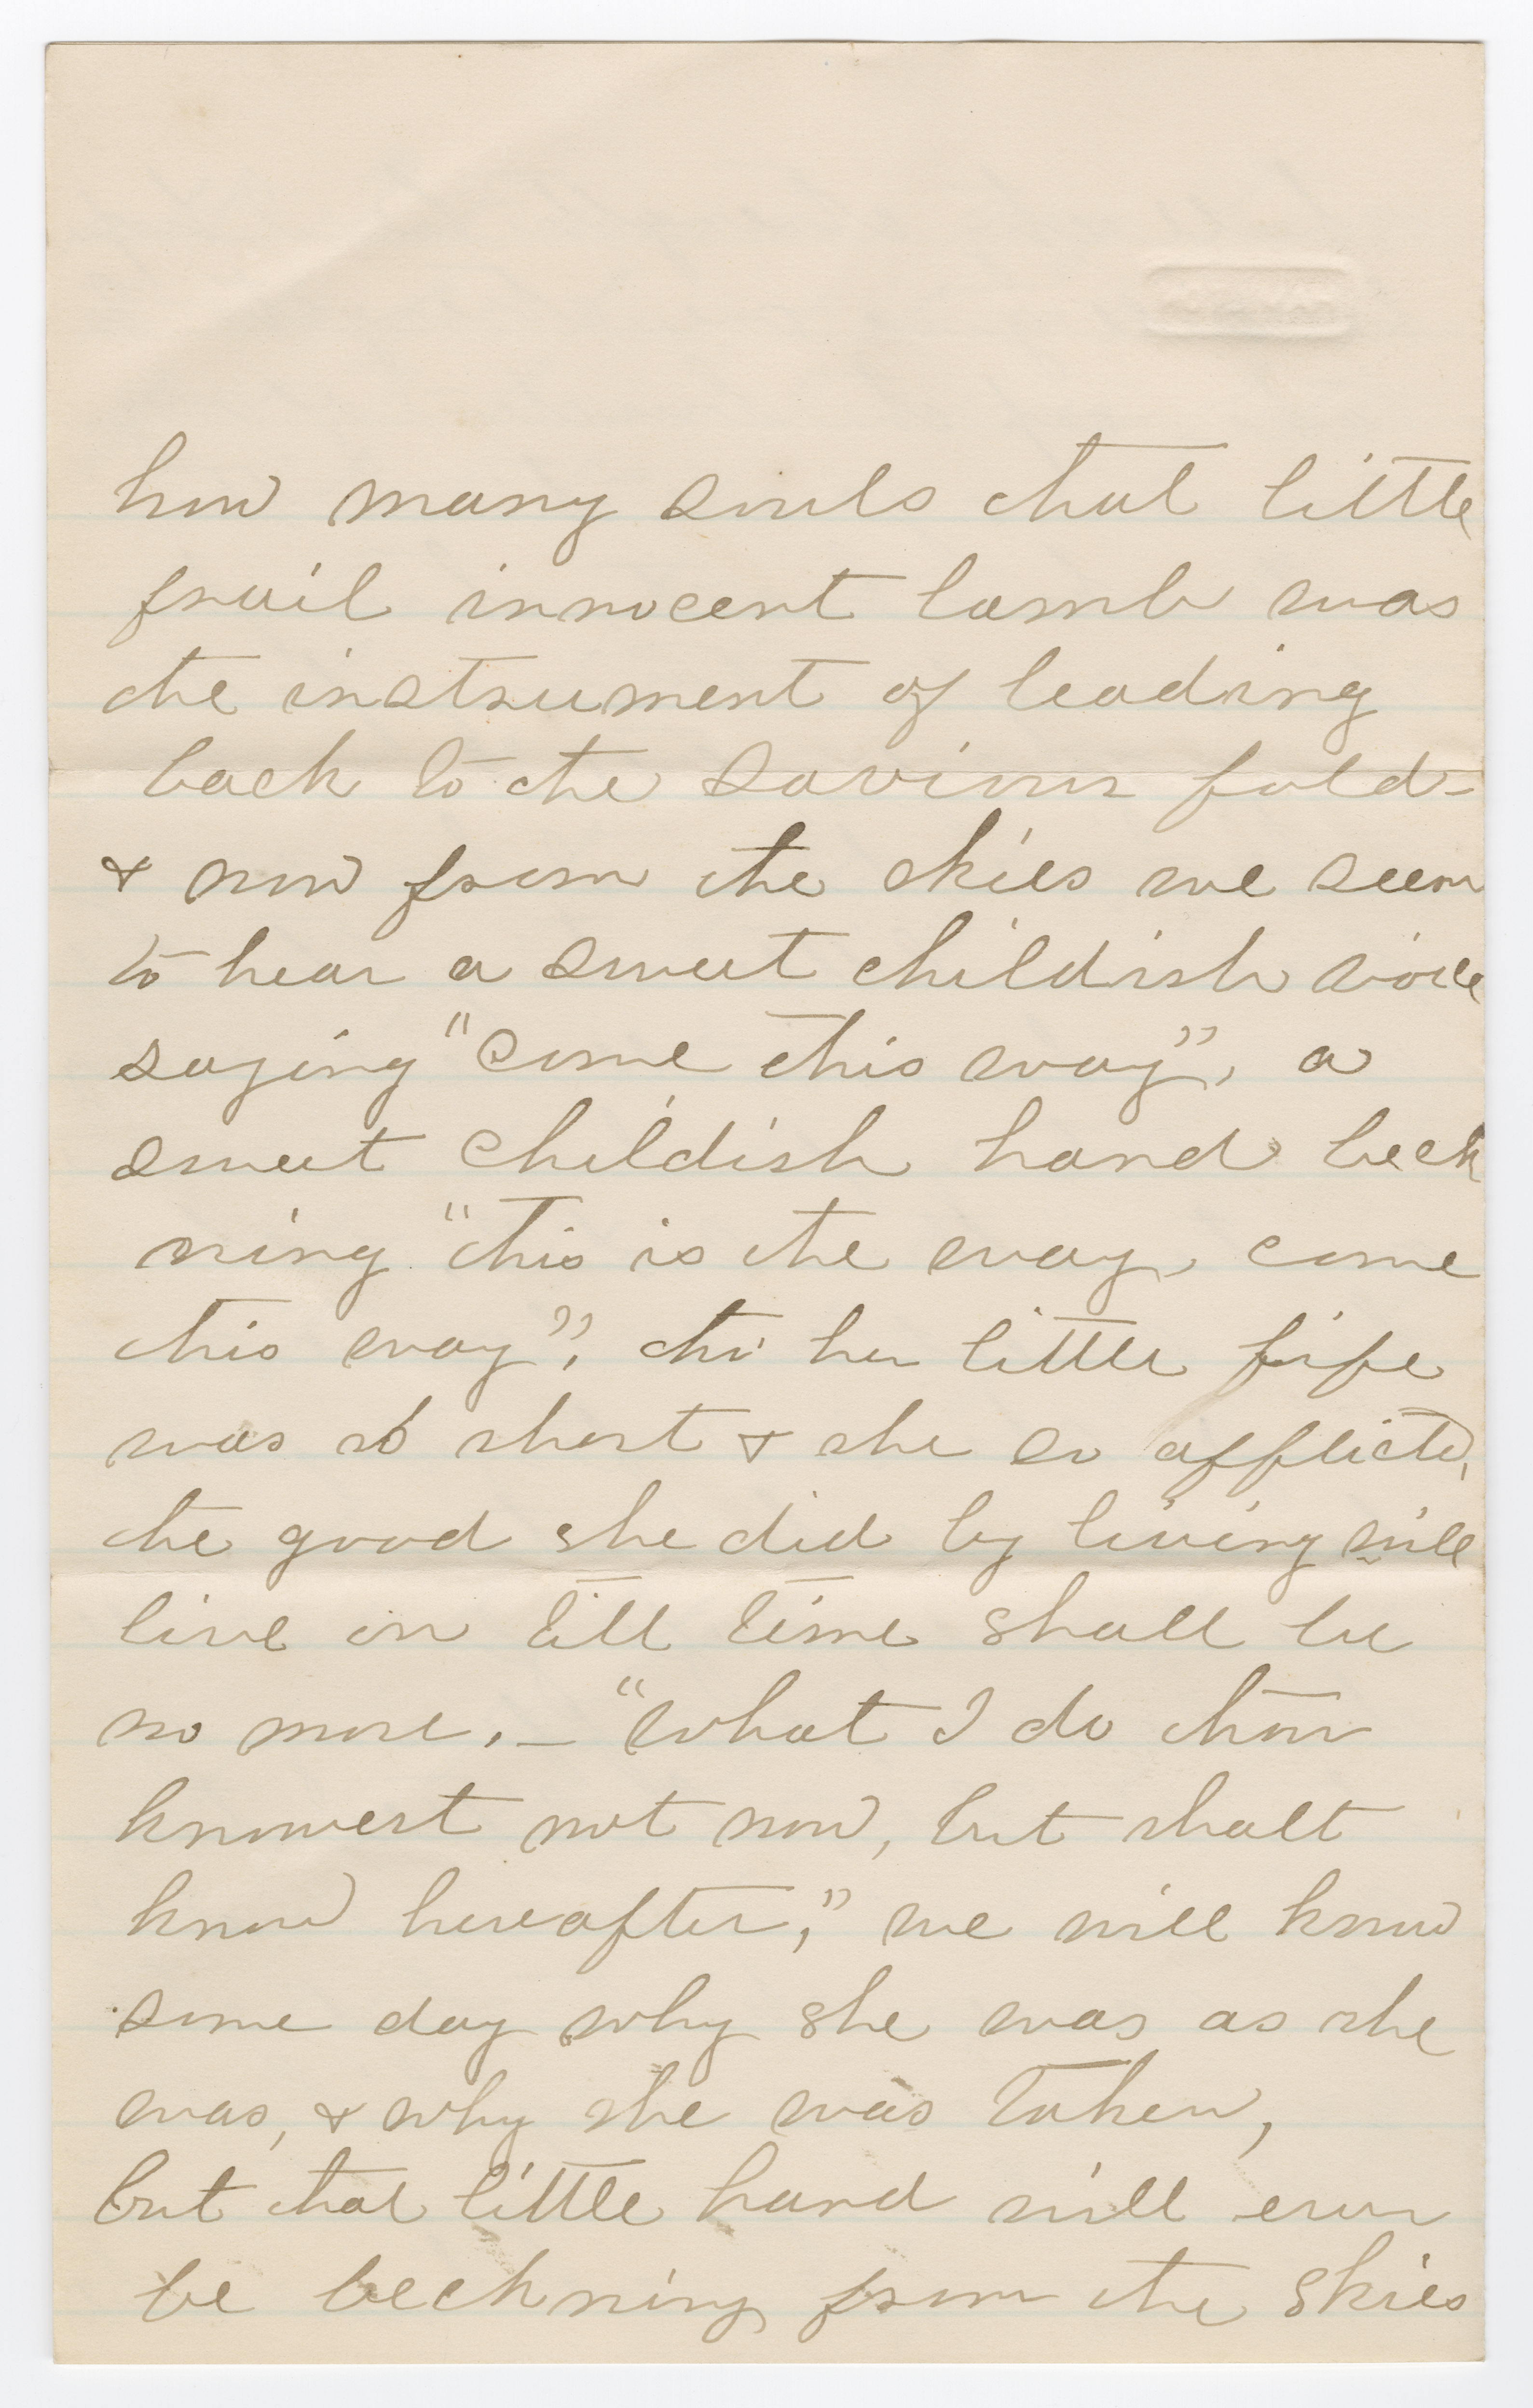 how many souls that little
frail innocent lamb was
the instrument of leading
back to the saviour fold -
& now from the skies we seem
to hear a sweet childish voice
saying "come this way", a
sweet childish hand beck
ning "this is the way, come
this way", tho' her little life
was so short & she so afflicted,
the good she did by living will
live on till time shall be
no more. - "what I do thou
knowest not now, but shalt
know hereafter," we will know
some day why she was as she
was, & why she was taken,
but that little hand will ever
be beckning from the skies